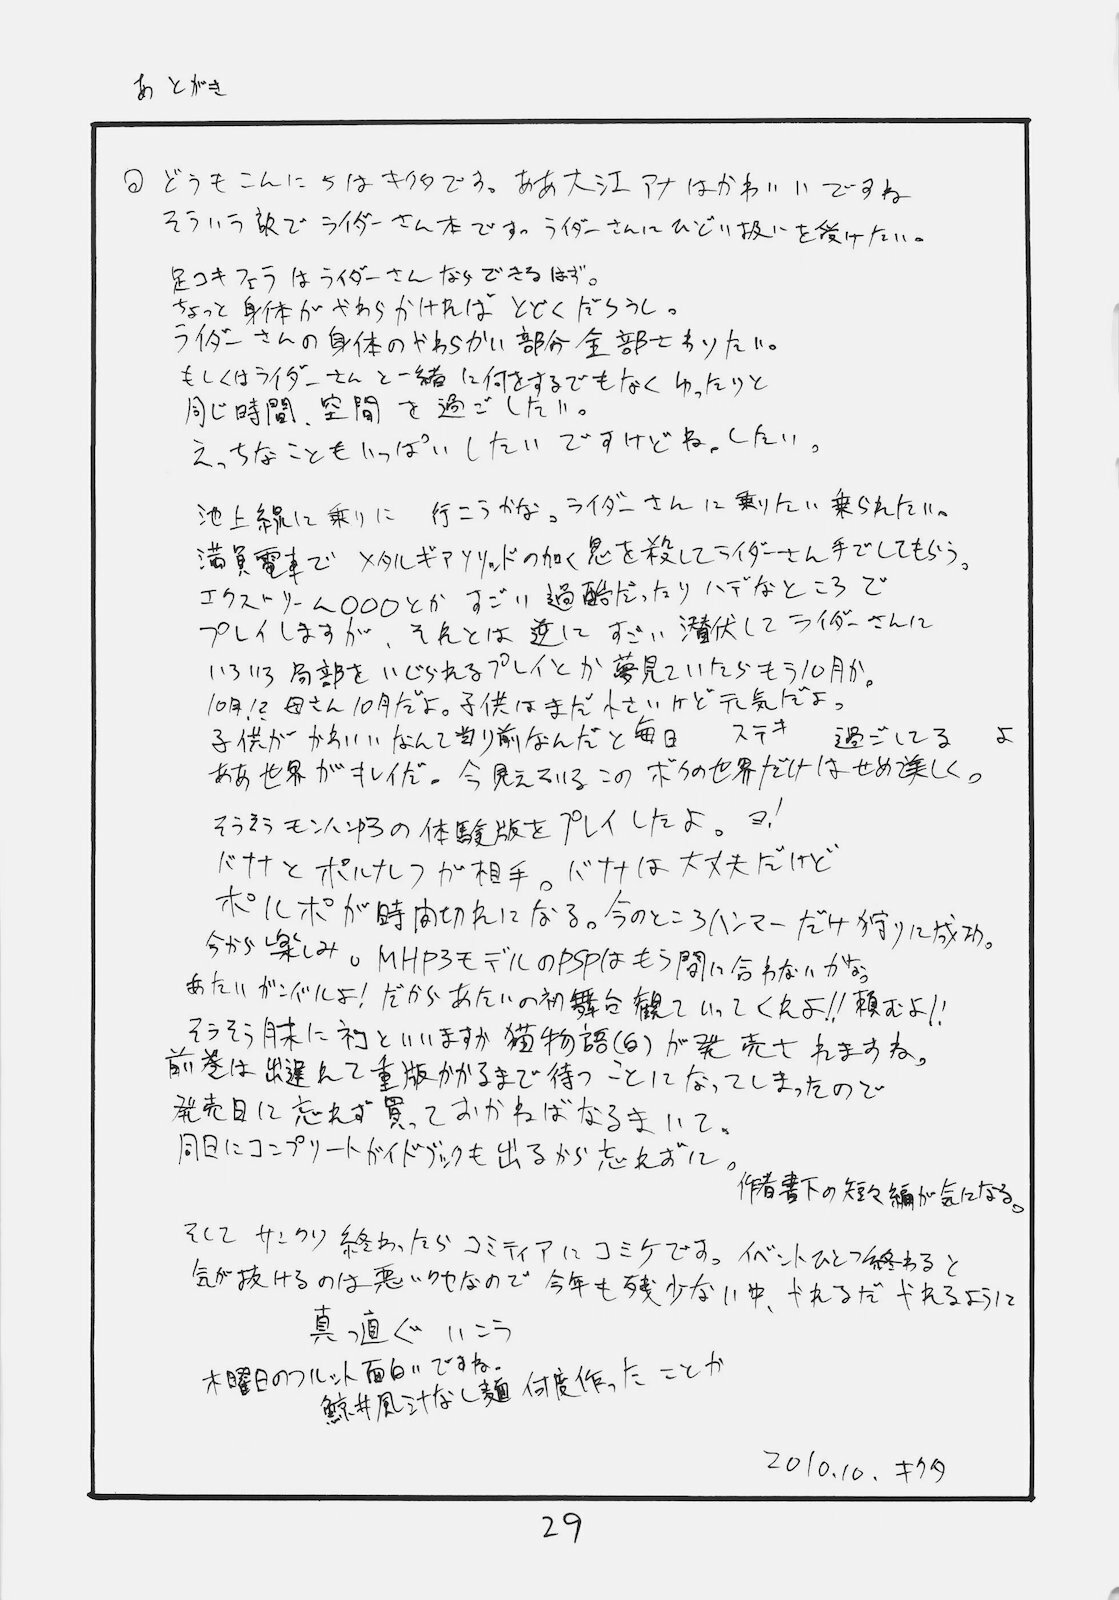 あとがき
どうもこんにちはキクタです。ああ大江アナはかわいいですね
そういう訳でライダーさん本です。ライダーさんにひどい扱いを受けたい。
足コキフェラはライダーさんならできるはず。
ちょっと身体がやわらかければとどくだろうし。
ライダーさんの身体のやわらかい部分全部さわりたい。
もしくはライダーさんと一緒に何をするでもなくゆったりと
同じ時間、空間を過ごしたい。
えっちなこともいっぱいしたいですけどね。したい。
池上線に乗りに 行こうかな。ライダーさんに乗りたい乗られたい。
満員電車でメタルギアソリッドの如く息を殺してライダーさん手でしてもらう。
エクストリーム○○○とかすごい過酷だったりハデなところで
プレイしますが、それとは逆にすごい潜伏してライダーさんに
いろいろ局部をいじられるプレイとか夢見ていたらもう10月か。
10月!? 母さん10月だよ。子供はまだ小さいけど元気だよ。
子供がかわいいなんて当り前なんだと毎日 ステキ 過ごしてる よ
ああ世界がキレイだ。今見えているこのボクの世界だけはせめて美しく。
そうそうモンハンP3の体験版をプレイしたよ。ヨ!
バナナとポルナレフが相手。バナナは大丈夫だけど
ポルポが時間切れになる。今のところハンマーだけ狩りに成功。
今から楽しみ。MHP3モデルのPSPはもう間に合わないかな。
あたいガンバルよ!だからあたいの初舞台観ていってくれよ!!頼むよ!!
そうそう月末に初といいますか猫物語(白)が発売されますね。
前巻は出遅れて重版かかるまで待つことになってしまったので
発売日に忘れず買っておかねばなるまいて。
同日にコンプリートガイドブックも出るから忘れずに。
作者書下の短々編が気になる。
そして サンクリ終わったらコミティアにコミケです。イベントひとつ終わると
気が抜けるのは悪いクセなので今年も残少ない中、やれるだやれるように
真っ直ぐ いこう
木曜日のフルット面白いですね。
鯨井風汁なし麺 何度作ったことか
2010.10. キクタ
29